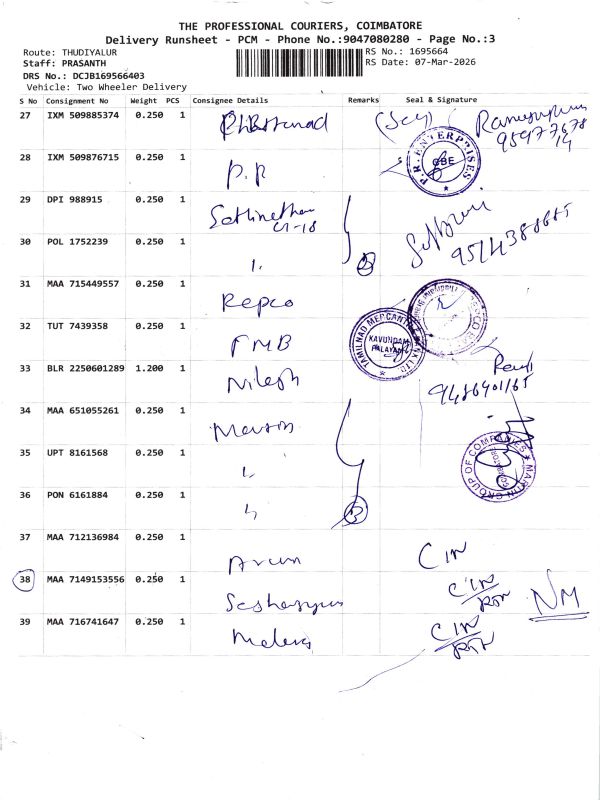 THE PROFESSIONAL COURIERS, COIMBATORE
Delivery Runsheet - PCM - Phone No.:9047080280 - Page No.:3
Route: THUDIYALUR
RS No.: 1695664
Staff: PRASANTH
RS Date: 07-Mar-2026
DRS No.: DCJB169566403
Vehicle: Two Wheeler Delivery
S No Consignment No Weight PCS Consignee Details Remarks Seal & Signature
27 IXM 509885374 0.250 1
28 IXM 509876715 0.250 1 P.R
P.R. ENTERPRISES
CBE
29 DPI 988915 0.250 1
30 POL 1752239 0.250 1
2
31 MAA 715449557 0.250 1 Repco
32 TUT 7439358 0.250 1 TMB
TAMILNAD MERCANTILE BANK LTD.
KAVUNDAM
PALAYAM
33 BLR 2250601289 1.200 1 Nilesh
34 MAA 651055261 0.250 1
35 UPT 8161568 0.250 1
MARTIN GROUP OF COMPANIES
36 PON 6161884 0.250 1
3
37 MAA 712136984 0.250 1 Arun CIN
38 MAA 7149153556 0.250 1 CIN
RTN
NM
39 MAA 716741647 0.250 1 CIN
RTN